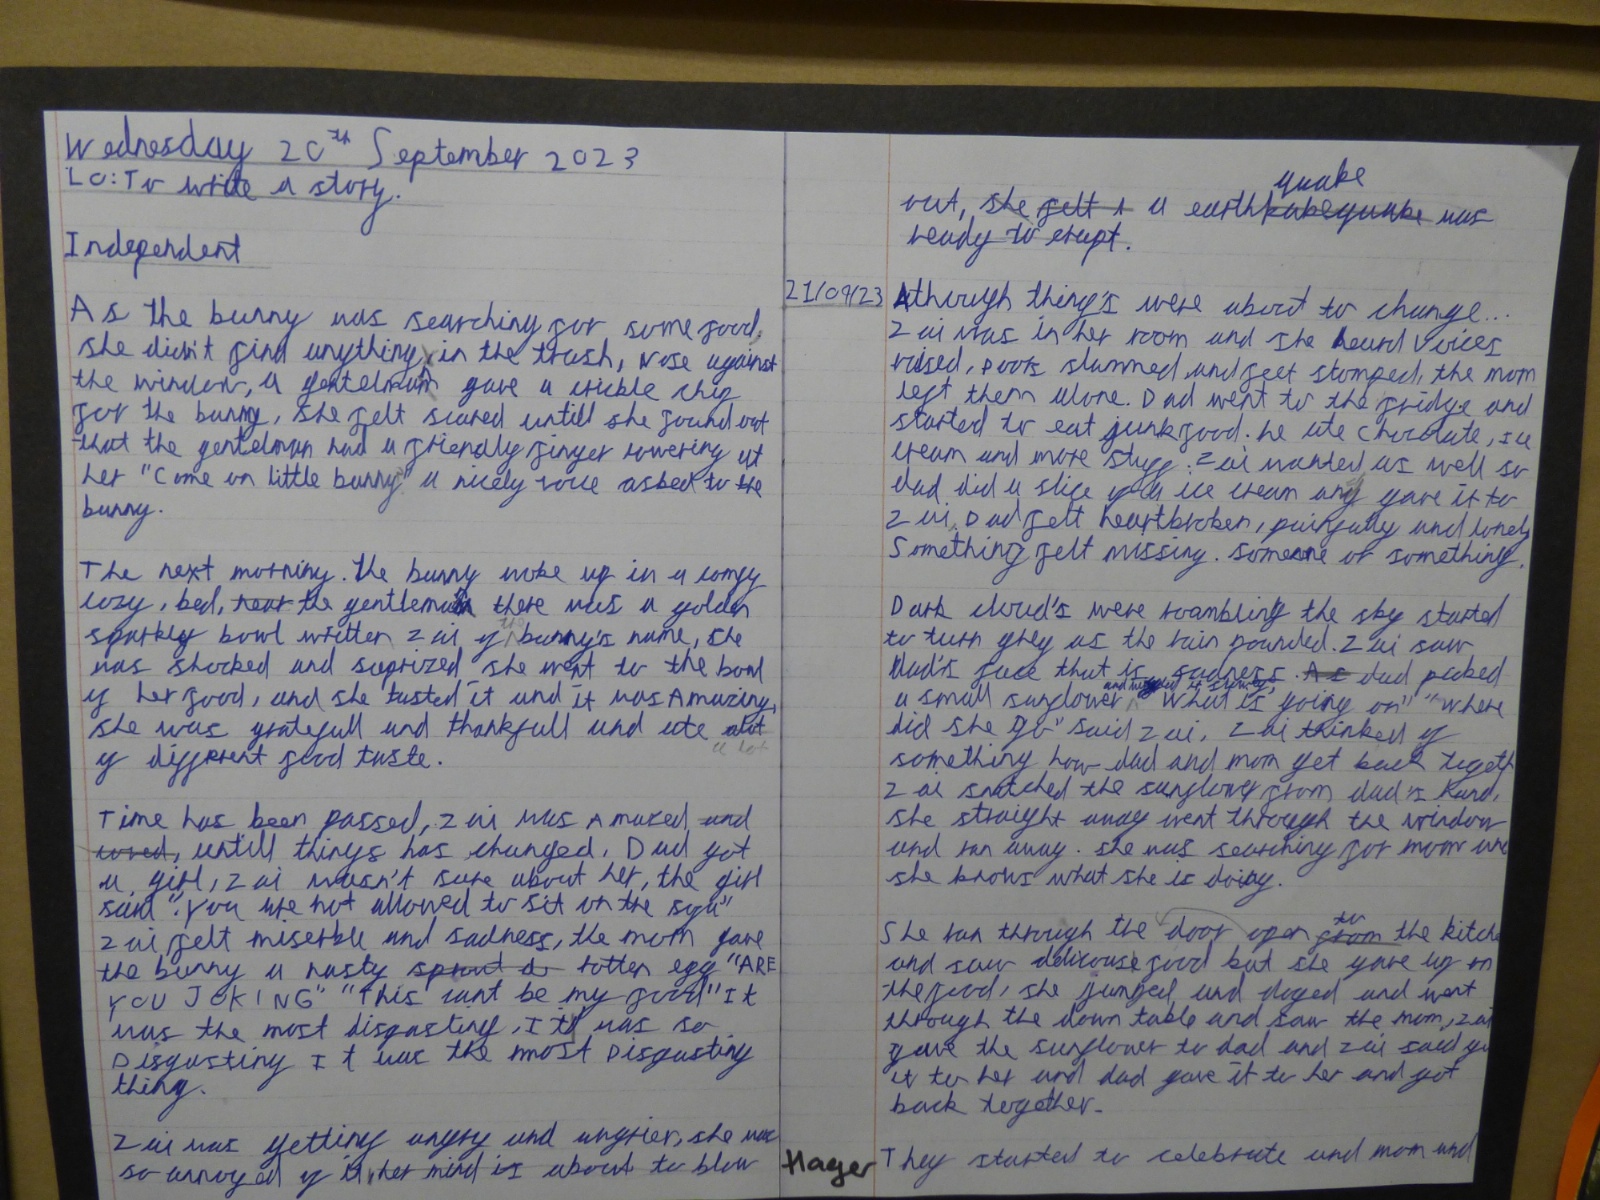 Wednesday 20th September 2023
LO: To write a story.
Independent
As the bunny was searching for some food,
she didn't find anything, in the trash, Nose against
the window, a gentelman gave a crickle chip
for the bunny, she felt scared untill she found out
that the gentelman had a friendly finger towering at
her "Come on little bunny" a nicely voice asked to the
bunny.
The next morning. the bunny woke up in a comfy
cozy, bed, near the gentleman there was a golden
sparkley bowl written Zai of the bunny's name, she
was shocked and suprized she went to the bowl
of her food, and she tasted it and it was Amazing,
she was gratefull and thankfull and ate alot
a lot
of different food taste.
Time has been passed, Zai was Amazed and
loved, untill things has changed, Dad got
a girl, Zai wasn't sure about her, the girl
said "You are not allowed to sit on the sofa"
Zai felt miserble and sadness, the mom gave
the bunny a nasty sprout do rotten egg "ARE
YOU JOKING" "This cant be my food" It
was the most disgasting, It was so
Disgusting It was the most Disgasting
thing.
Zai was getting angry and angrier, she was
so annoyed of it, her mind is about to blow
quake
out, she felt a earthkakequake was
ready to erupt.
21/09/23
Although thing's were about to change...
Zai was in her room and she heard voices
raised, Doors slammed and feet stomped, the mom
left them alone. Dad went to the fridge and
started to eat junkfood. he ate chocolate, ice
cream and more stuff. Zai wanted as well so
dad did a slice of a ice cream and gave it to
Zai. Dad felt heartbroken, painfully and lonely
Something felt missing. someone or something.
Dark cloud's were roambling the sky started
to turn grey as the rain pounded. Zai saw
dad's face that is sadness. As dad picked
a small sunflower and it slowly "What is going on" "where
did she go" said Zai, Zai thinked of
something how dad and mom get back togeth
Zai snatched the sunflower from dad's hand,
she straight away went through the window
and ran away. she was searching for mom and
she knows what she is doing.
She ran through the door open from to the kitche
and saw delicouse food but she gave up on
the food, she jumped and doged and went
through the down table and saw the mom, Zai
gave the sunflower to dad and Zai said gi
it to her and dad gave it to her and got
back together.
Hager
They started to celebrate and mom and